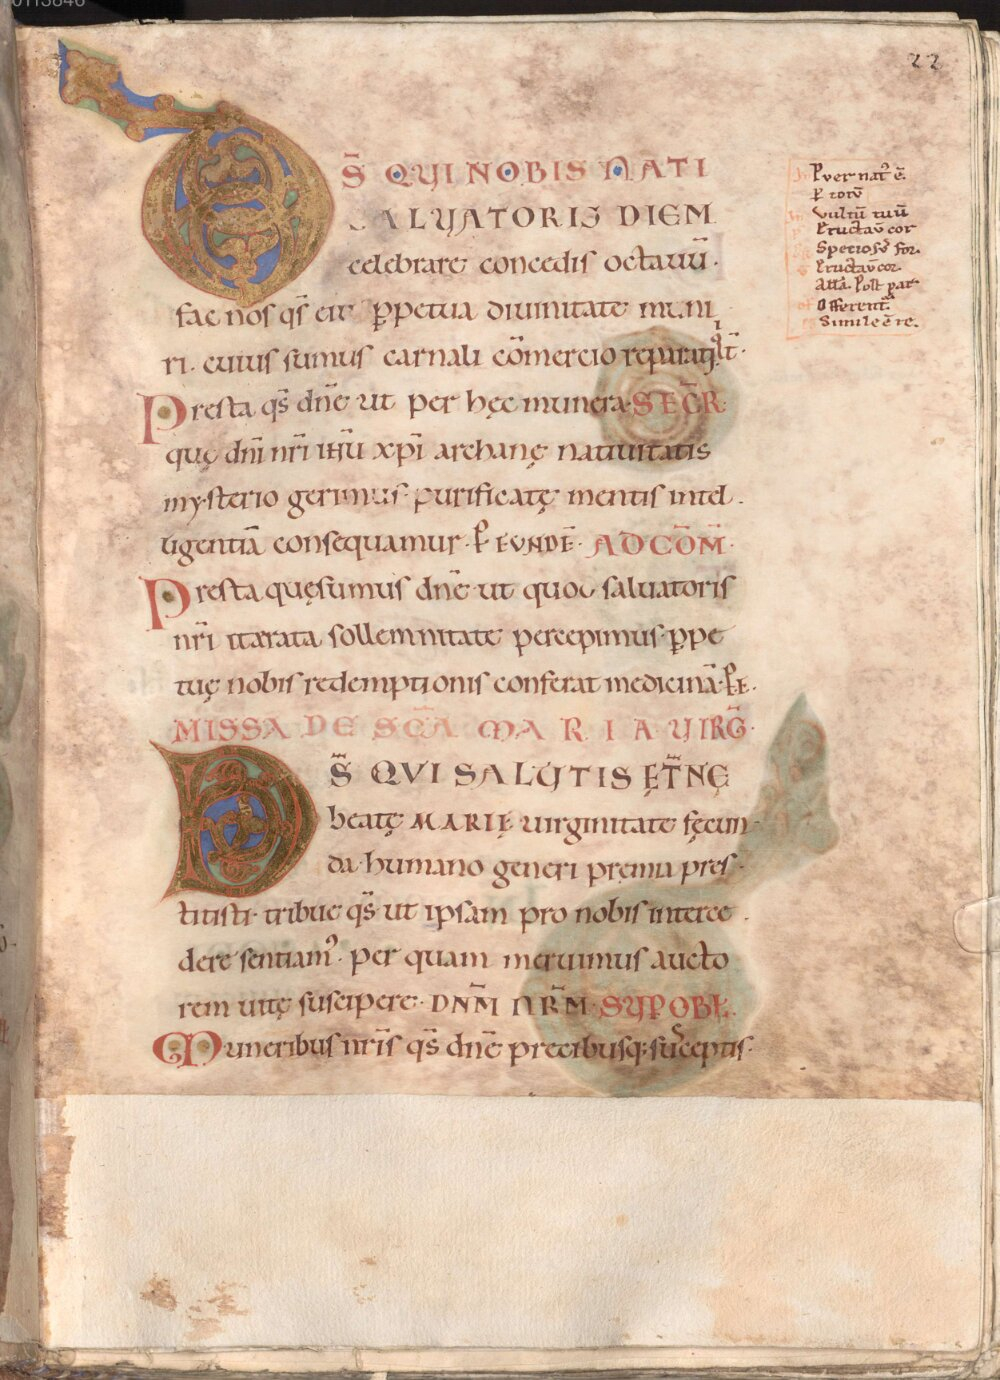 22
DS̄ QUI NOBIS NATI
SALVATORIS DIEM
celebrare concedis octauū·
fac nos qs̄ eiꝰ ꝑpetua diuinitate muni
ri· cuius sumus carnali cōmercio reparati·
Presta qs̄ dnē ut per hęc munera· SECR̄
quę dnī nrī ihū xp̄i archanę natiuitatis
mysterio gerimus· purificatę mentis intel
ligentiā consequamur· ꝑ EUNDĒ· AD COM̄·
Presta quęsumus dnē ut quod saluatoris
nrī iterata sollemnitate percepimus· ꝑpe
tuę nobis redemptionis conferat medicinā· ꝑ E·
MISSA DE SC̄A MARIA VIRḠ·
DS̄ QVI SALUTIS ĘT̄NĘ
beatę MARIĘ uirginitate fęcun
da· humano generi premia pres
titisti· tribue qs̄ ut ipsam pro nobis interce
dere sentiamꝰ· per quam meruimus aucto
rem uitę suscipere· DNM̄ NR̄M· SUP OBL̄·
Muneribus nrīs qs̄ dnē precibusq; susceptis·
Puer natꝰ ē·
ꝑ totū
Vultū tuū
Eructaū cor
Speciosꝰ for·
Eructaū cor·
Alla· Post par
Offerentꝰ
Simile ē re·